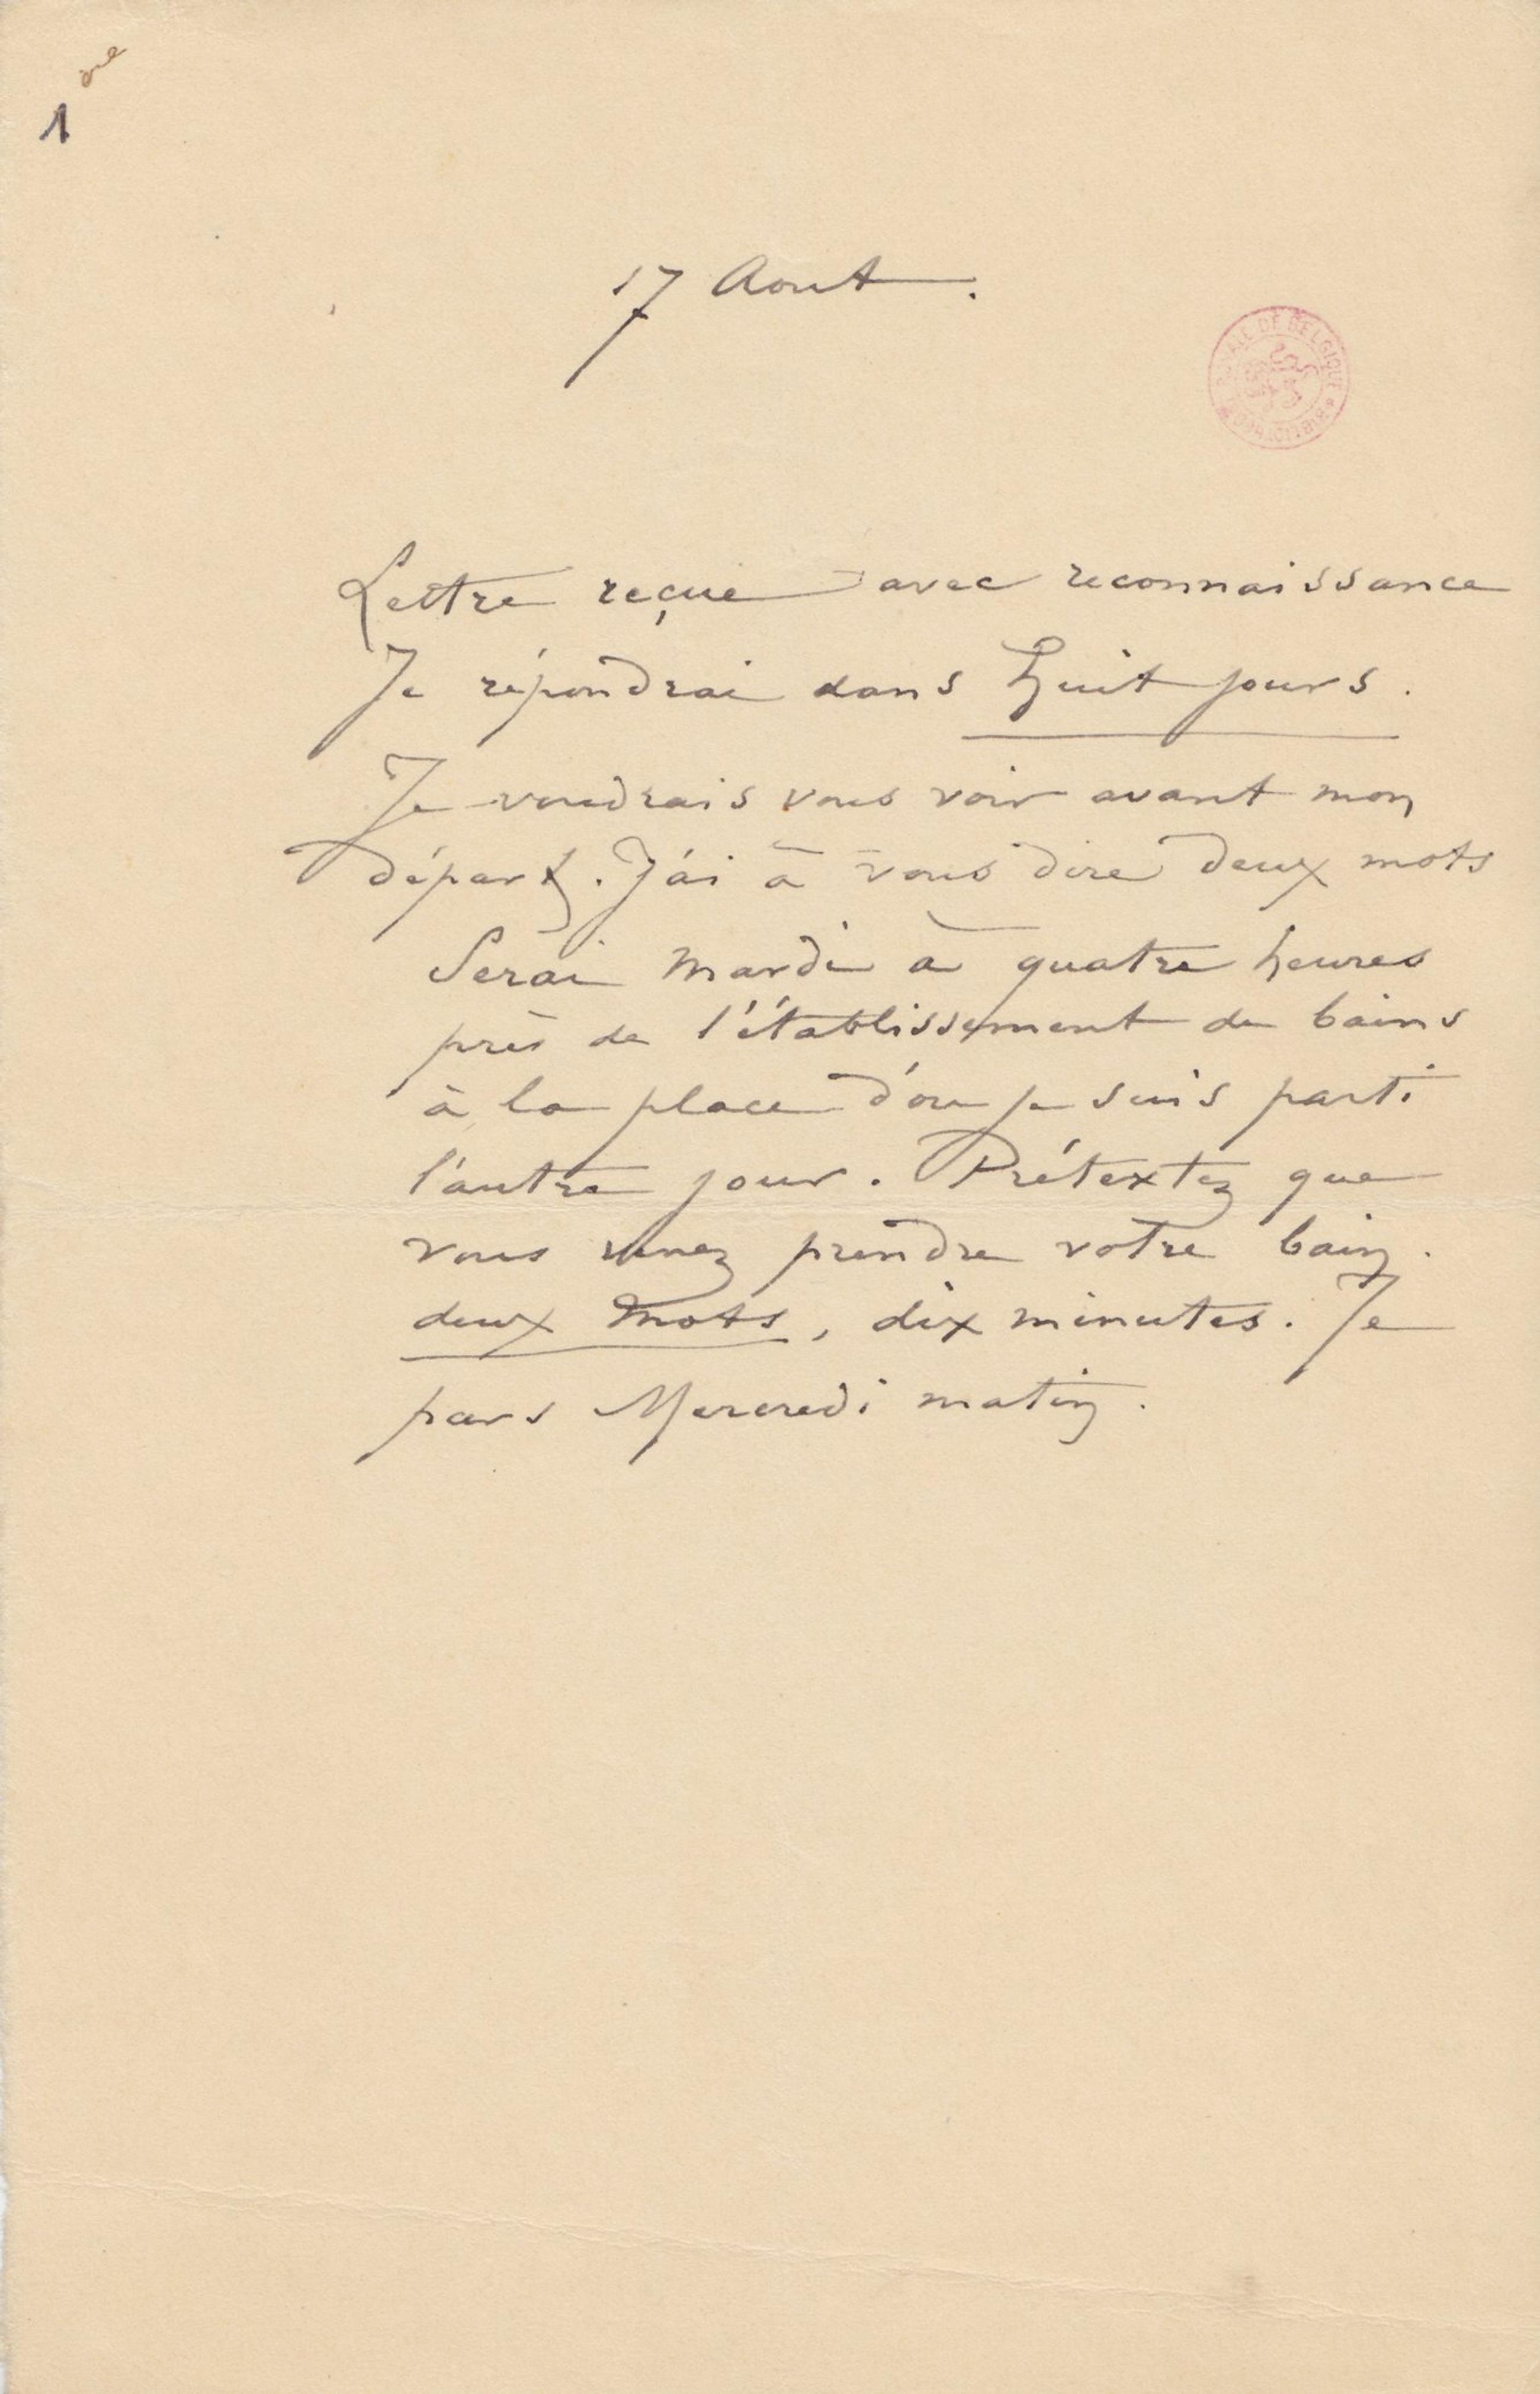 1
17 Aout.
ROYALE DE BELGIQUE * BIBLIOTHEQUE
Lettre reçue avec reconnaissance
Je répondrai dans huit jours.
Je voudrais vous voir avant mon
départ. J'ai à vous dire deux mots
Serai Mardi à quatre heures
près de l'établissement de bains
à la place d'ou je suis parti
l'autre jour. Prétextez que
vous venez prendre votre bain.
deux mots, dix minutes. Je
pars Mercredi matin.